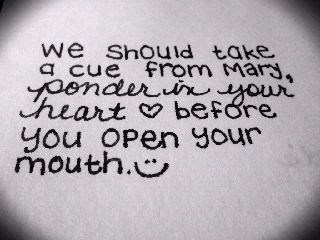 we should take
a cue from Mary,
ponder in your
heart ♡ before
you open your
mouth. :)